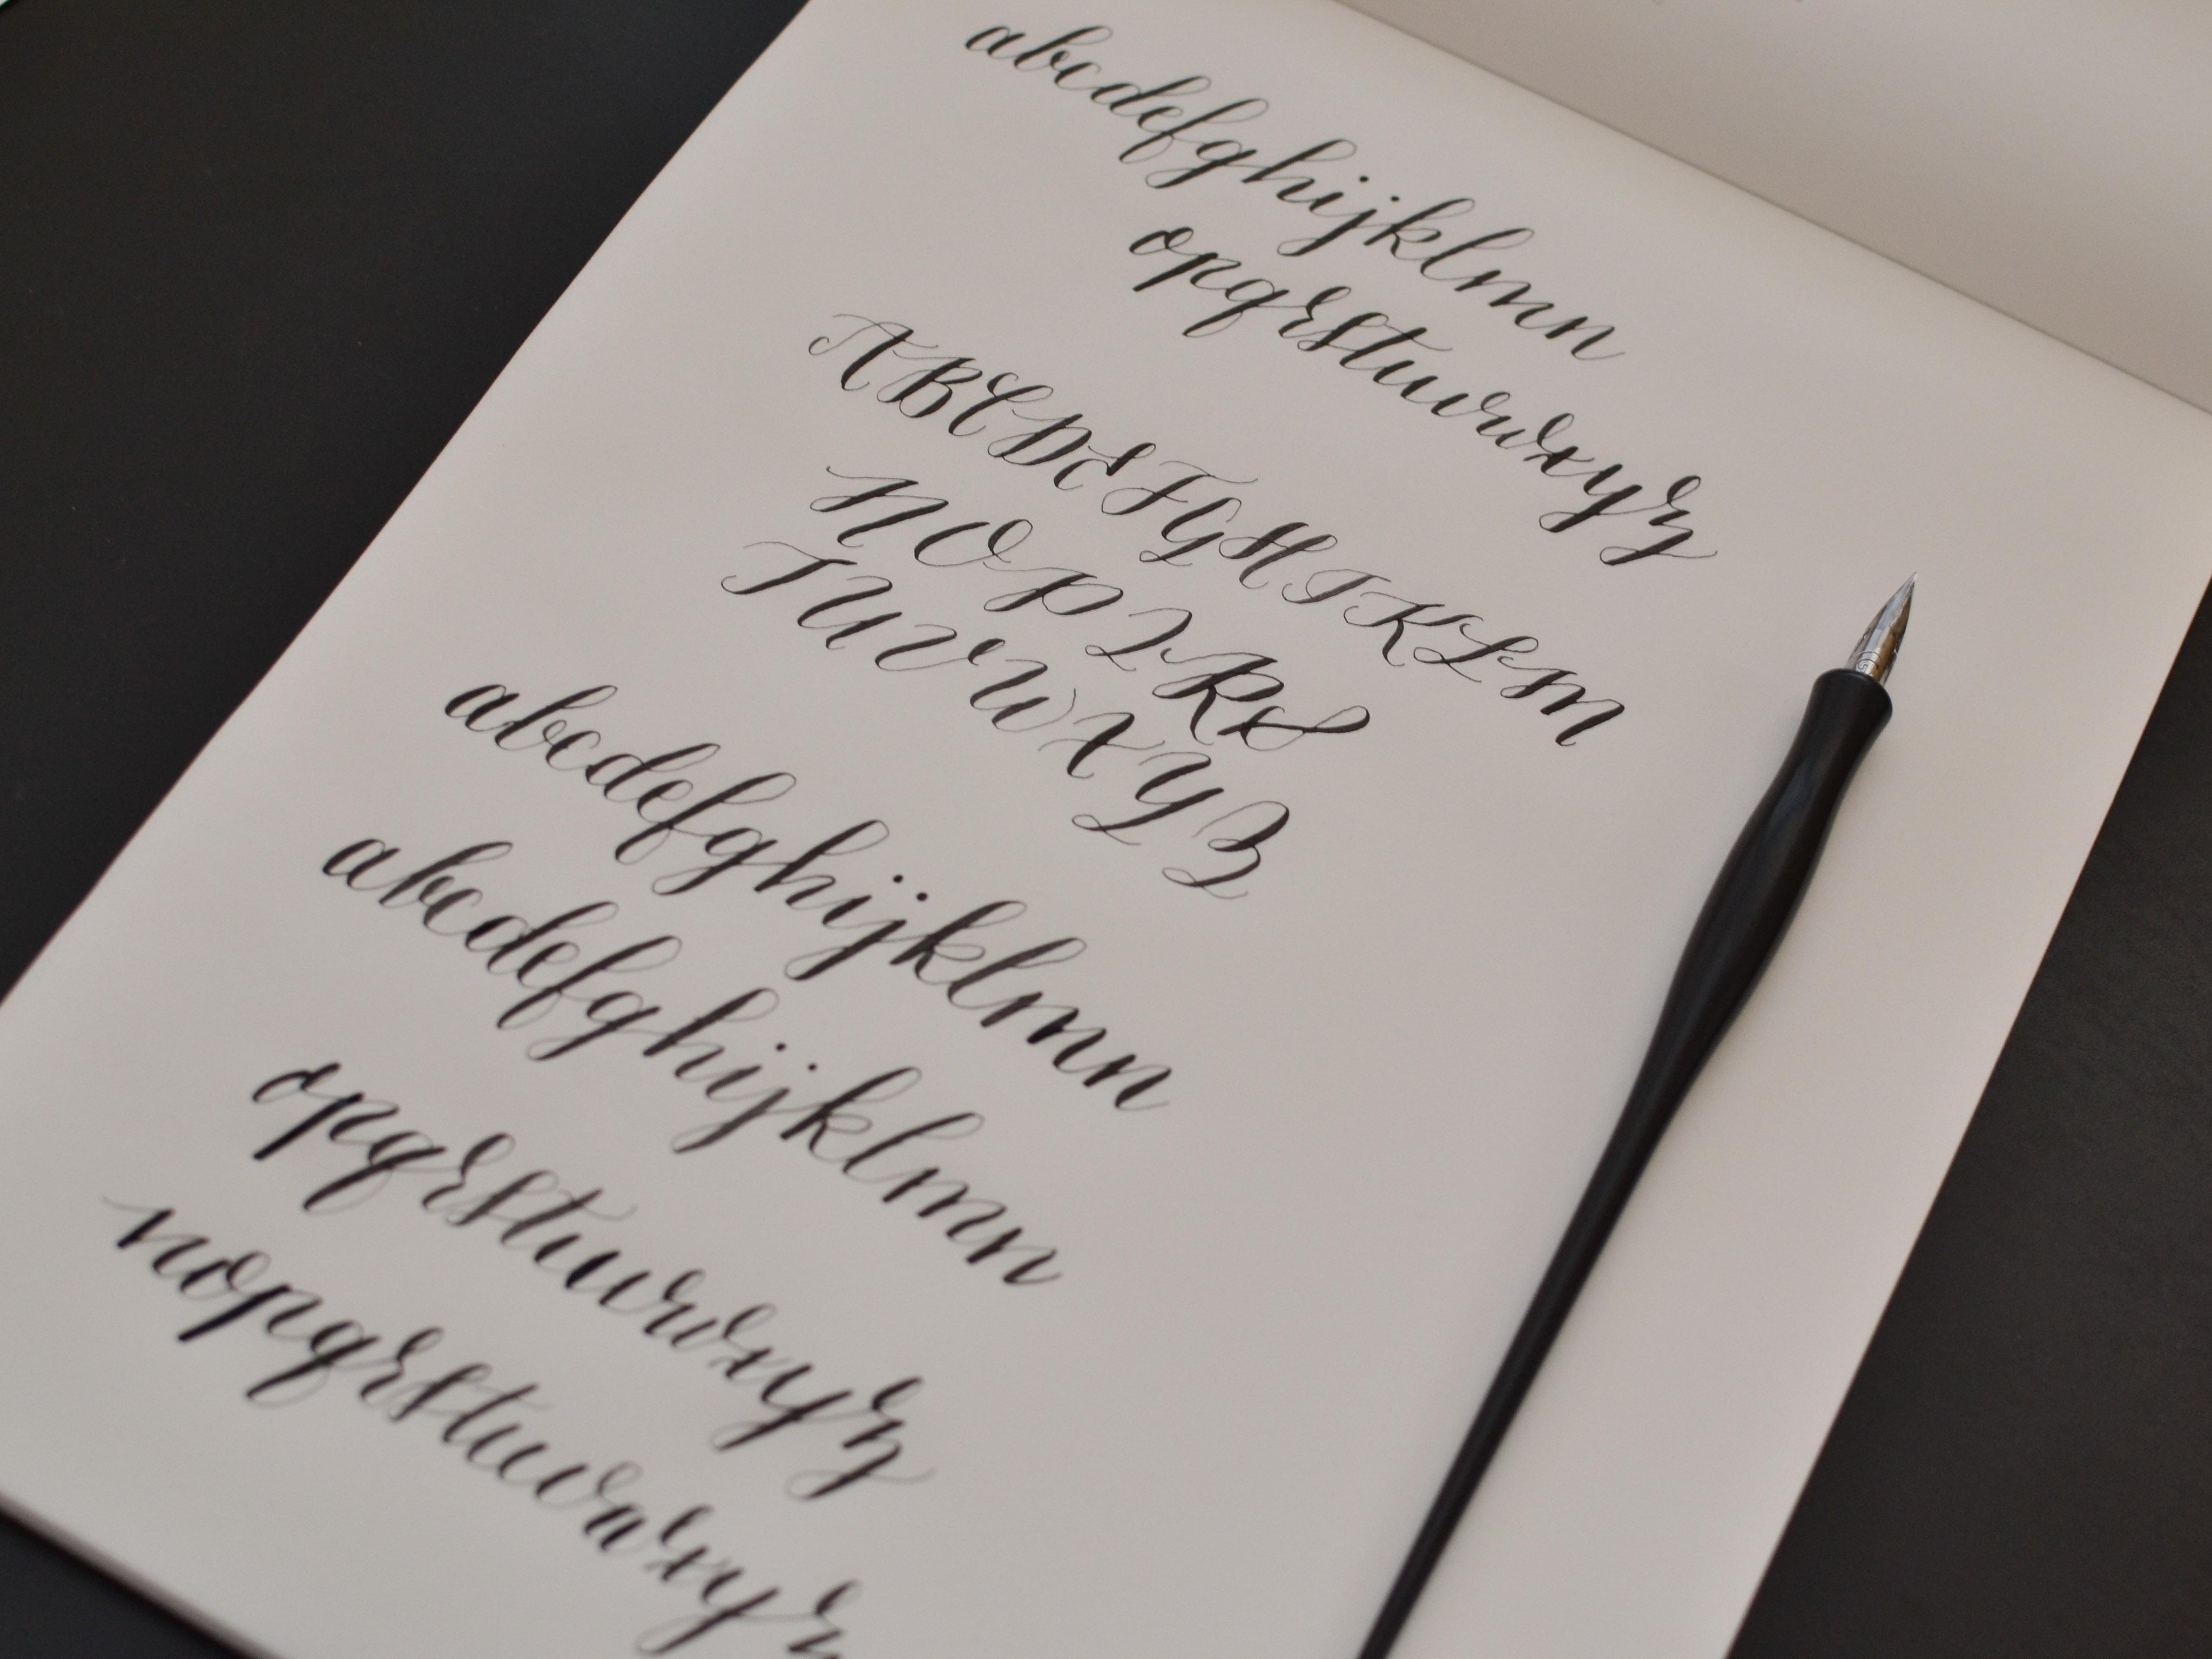 abcdefghijklmn
opqrstuvwxyz
ABCDEFGHIKLM
NOPQRS
TUVWXYZ
abcdefghijklmn
abcdefghijklmn
opqrstuvwxyz